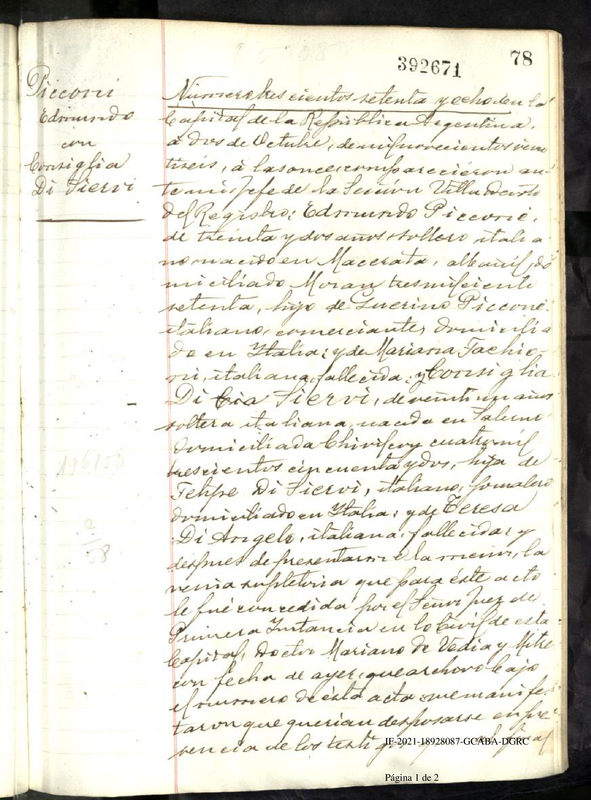 392671
78
Piccorri
Edmundo
con
Consiglia
Di Siervi
Número trescientos setenta y ocho: en la
Capital de la República Argentina,
a dos de Octubre, de mil novecientos vein
tiseis, a las once, comparecieron an
te mi Jefe de la Sección Villa Devoto
del Registro: Edmundo Piccorri,
de treinta y dos años, soltero, italia
no, nacido en Macerata, albañil, do
miciliado Moran tres mil ciento
setenta, hijo de Piccorri,
italiano, comerciante, domicilia
do en Italia; y de Mariana
italiana, fallecida; y Consiglia
Di Siervi, de veintiun años
soltera, italiana, nacida en Salerno
domiciliada Chivilcoy cuatro mil
trescientos cincuenta y dos, hija de
Felipe Di Siervi, italiano, jornalero
domiciliado en Italia; y de Teresa
Di Angelo, italiana, fallecida; y
despues de presentarme la menor, la
venia supletoria que para éste acto
le fué concedida por el Señor Juez de
Primera Instancia en lo Civil de esta
Capital, doctor Mariano de Vedia y Mitre
con fecha de ayer, que archivo bajo
el numero de ésta acta, me manifes
taron que querian desposarse en pre
sencia de los testigos
IF-2021-18928087-GCABA-DGRC
Página 1 de 2